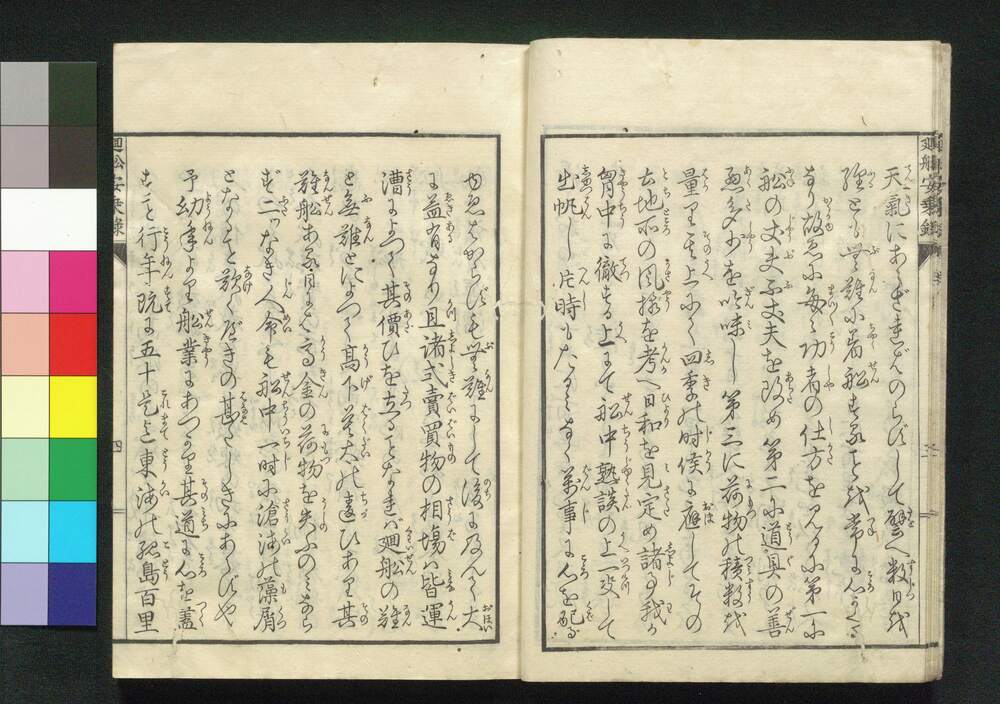 天氣にあらざればのらずして譬へ数日を
經とも無難に着船するを常に心がくる
なり故に毎〻功者の仕方を見るに第一に
船の丈夫不丈夫を改め第二に道具の善
悪多少を吟味し第三に荷物の積数を
量り其上にて四季の時候に應じてその
土地所の風様を考へ日和を見定め諸事我が
胸中に徹する上にて船中熟談の上一決して
出帆し片時もたゆみなく萬事に心を配る
ゆゑおからずも無難にして
に益有なり且諸式賣買物の相場は皆運
漕によつて其價ひを立ることなれば廻船の難
と無難とによつて高下莫大の違ひあり其
難船ある時は高金の荷物を失ふのみなら
ず二ツなき人命も船中一時に滄海の藻屑
となること歎くべきの甚だしきにあらずや
予幼年より船業にあつて其道に心を盡
すこと行年既に五十是迄東海の孤島百里
廻舩安乗録
四